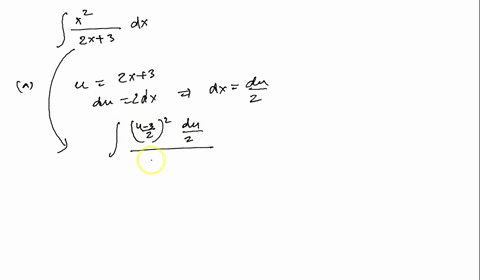 ∫ x² / (2x+3) dx
(a) u = 2x+3
du = 2dx ⇒ dx = du/2
∫ ((u-3)/2)² du/2